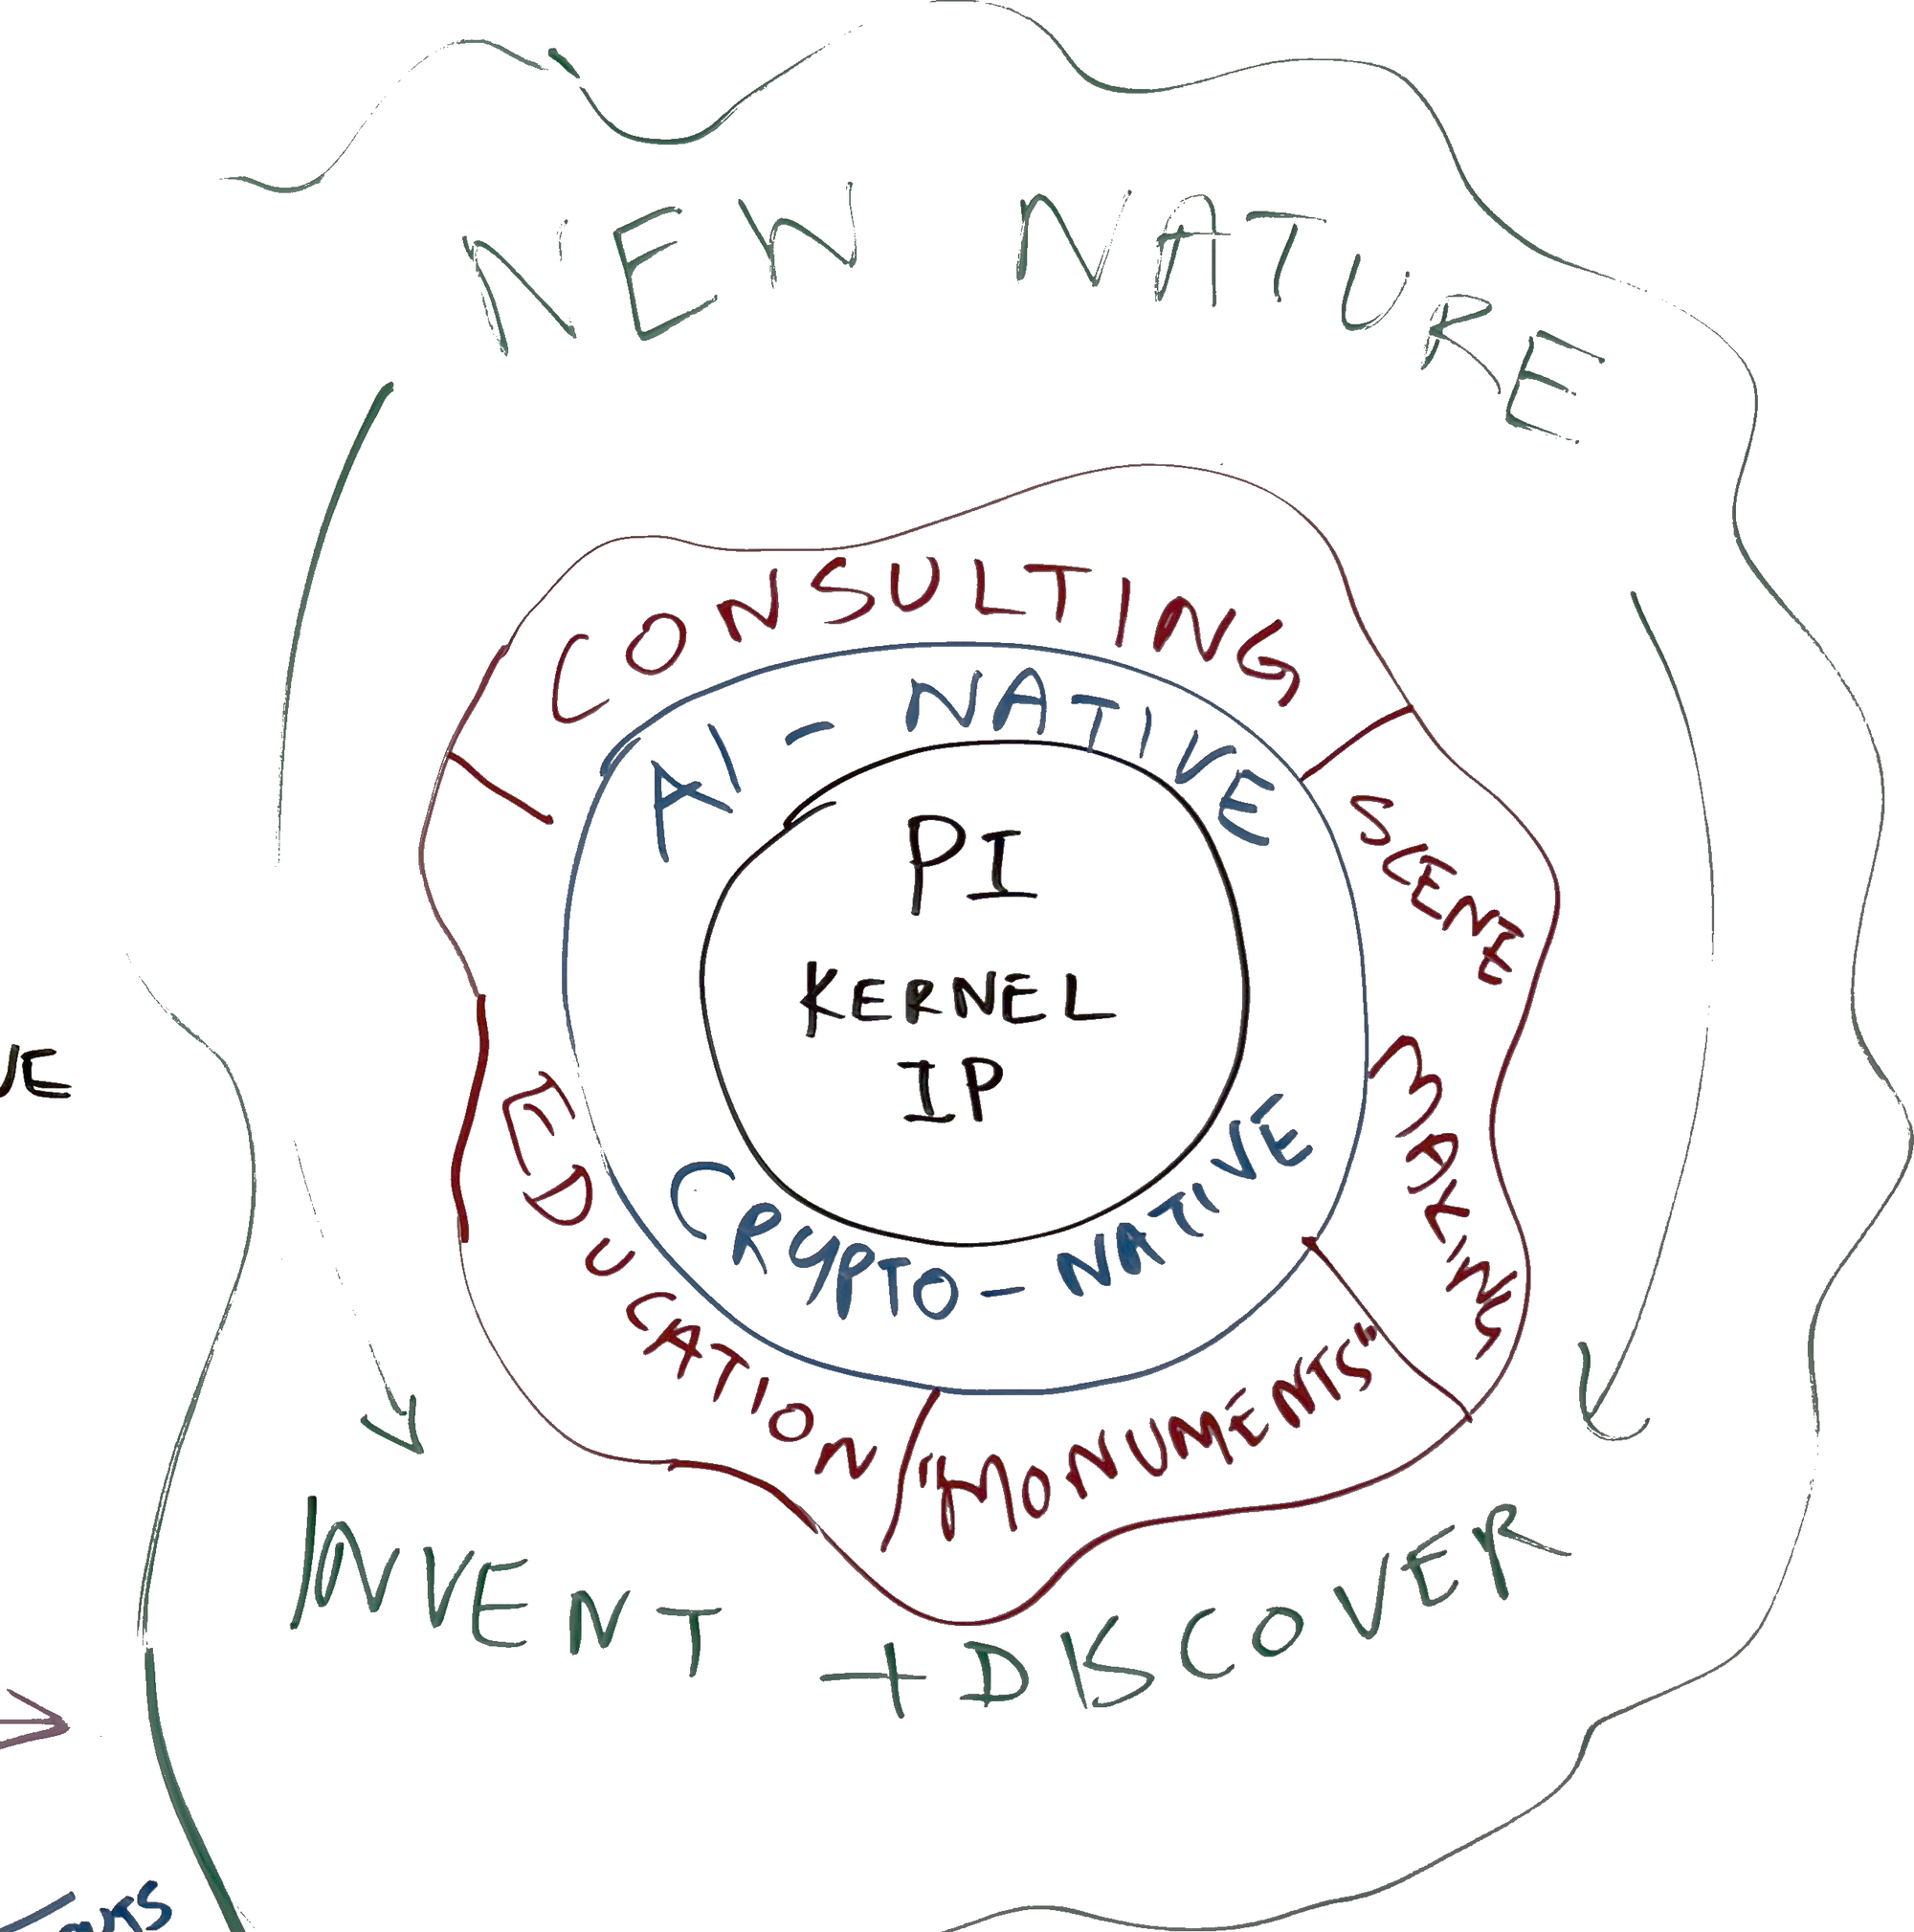 NEW NATURE
CONSULTING
AI-NATIVE
PI
KERNEL
IP
SCENE
MAKING
CRYPTO-NATIVE
EDUCATION
"MONUMENTS"
INVENT + DISCOVER